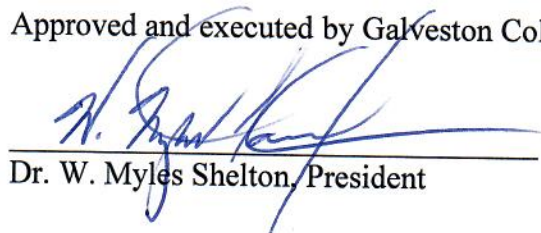 Approved and executed by Galveston Col
W. Myles
Dr. W. Myles Shelton, President